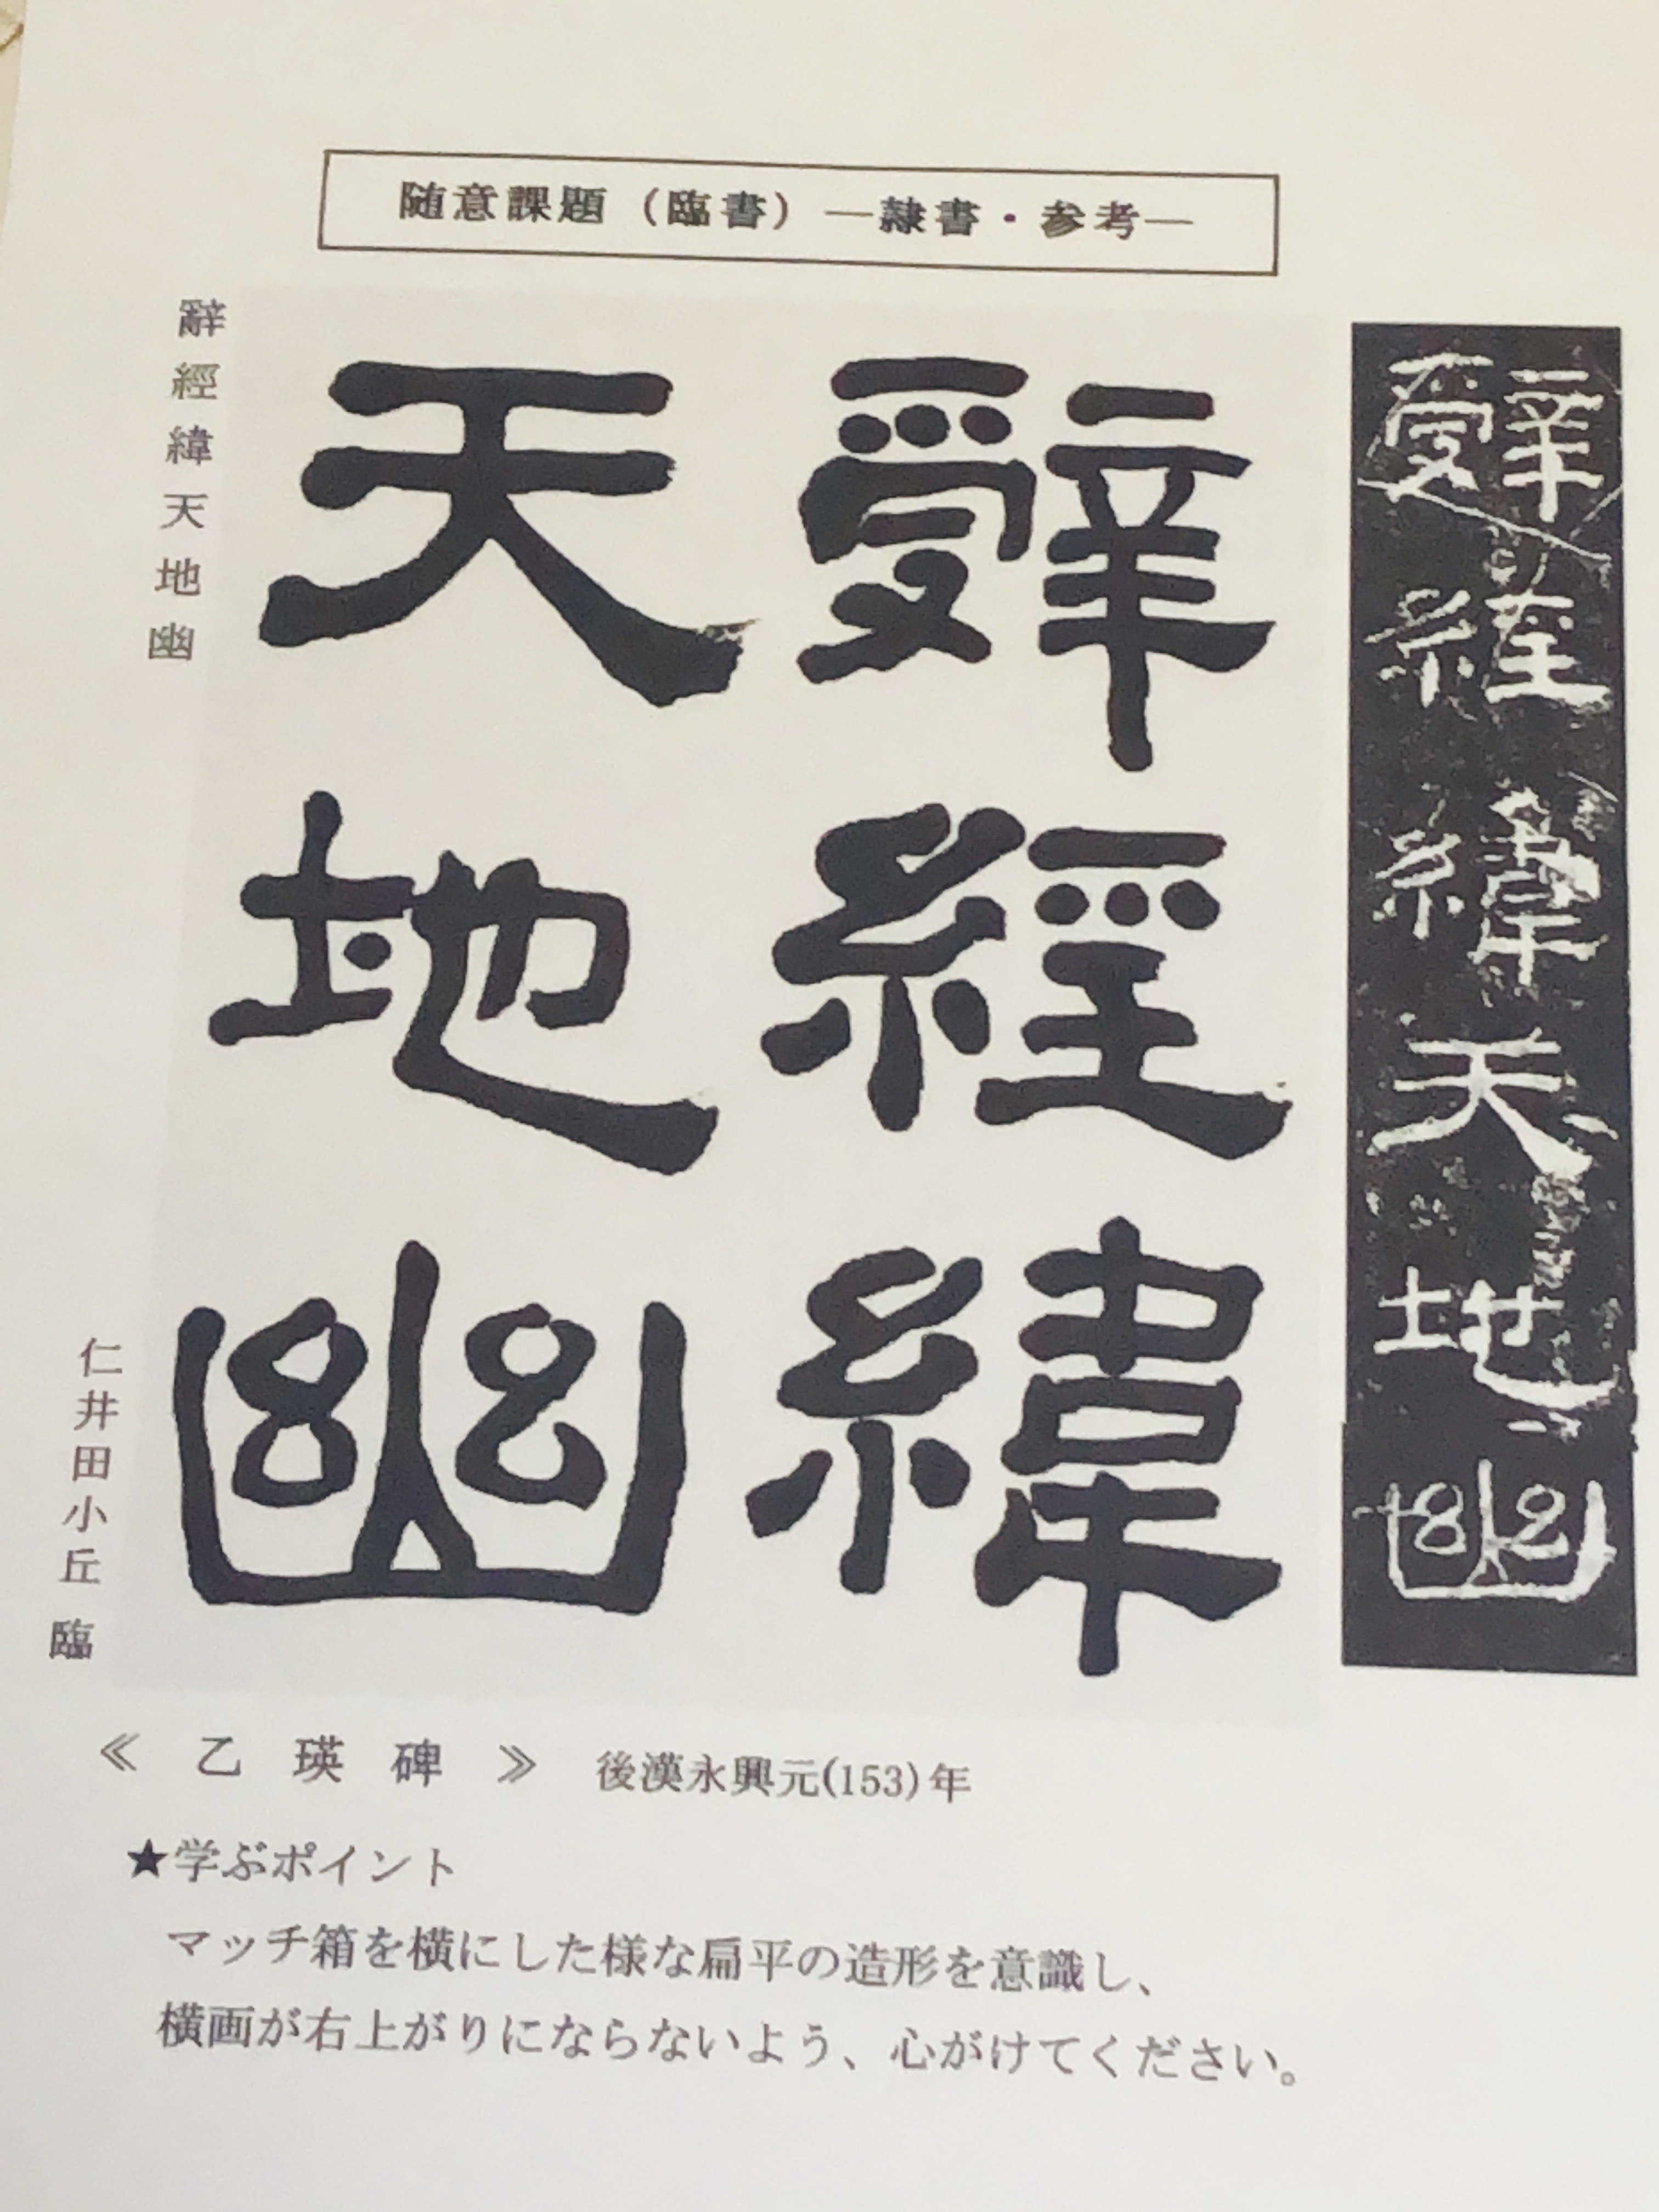 随意課題（臨書）―隷書・参考―
辭經緯天地幽
辭經緯
天地幽
辭經緯天地幽
仁井田小丘 臨
≪ 乙 瑛 碑 ≫ 後漢永興元(153)年
★学ぶポイント
マッチ箱を横にした様な扁平の造形を意識し、
横画が右上がりにならないよう、心がけてください。